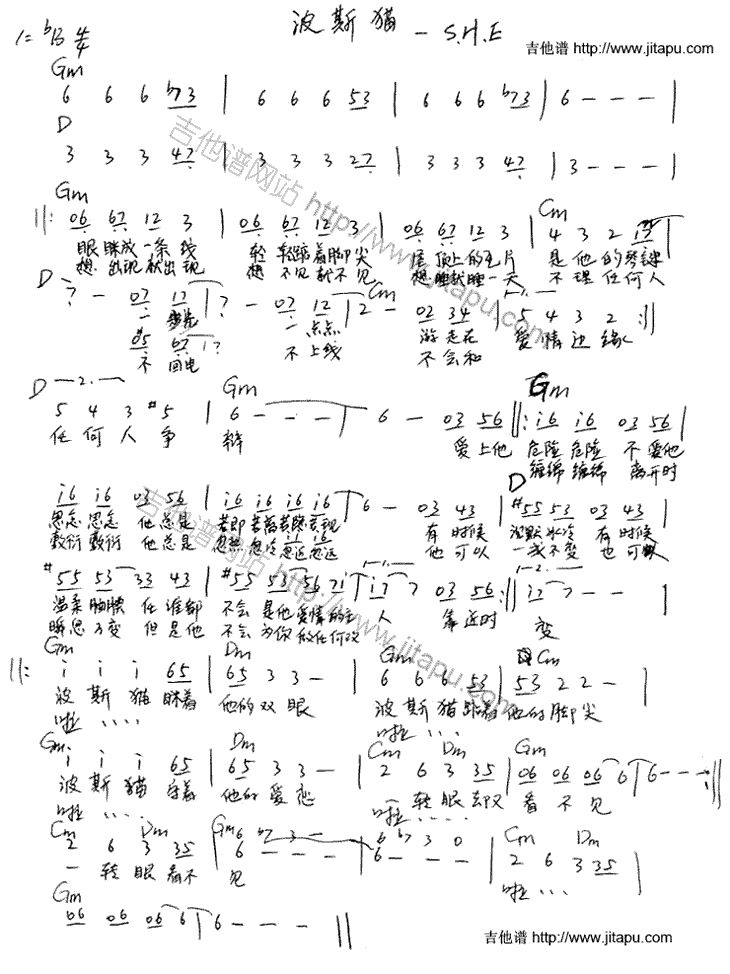 波斯猫 — S.H.E
吉他谱 http://www.jitapu.com
1=ᵇB 4/4
Gm
6 6 6 b73 | 6 6 6 53 | 6 6 6 b73 | 6 - - - |
D
3 3 3 47 | 3 3 3 27 | 3 3 3 47 | 3 - - - |
Gm Cm
||: 06 67 12 3 | 06 67 12 3 | 06 67 12 3 | 4 3 2 17
眼眯成一条线 轻轻踮着脚尖 屋顶上的毛片 是他的琴键
想出现就出现 想不见就不见 想睡就睡一天 不理任何人
D Cm 1.
7 - 07 17 | 7 - 07 12 | 2 - 02 34 | 5 4 3 2 :||
一步步 一点点 游走在 爱情边缘
#05 67 17
不回电 不上线 不会和
D 2. Gm Gm
5 4 3 #5 | 6 - - - | 6 - 03 56 ||: i6 i6 03 56 |
任何人争 辩 爱上他 危险危险 不爱他
缠绵缠绵 离开时
D
i6 i6 03 56 | i6 i6 i6 i6 | 6 - 03 43 | #55 53 03 43 |
思念思念 他总是 若即若离若隐若现 有时候 沉默冰冷 有时候
敷衍敷衍 他总是 忽热忽冷忽近忽远 他可以 一成不变 也可以
1. 2.
#55 53 33 43 | #55 53 56 7i | i7 7 03 56 :|| i7 7 - - |
温柔腼腆 任谁都 不会是他爱情的主 人 靠近时 变
瞬息万变 但是他 不会为你做任何改
Gm Gm Cm
||: i i i 65 | 65 3 3 - | 6 6 6 53 | 53 2 2 - |
波斯猫眯着 他的双眼 波斯猫踮着 他的脚尖
啦.... 啦....
Gm Dm Cm Dm Gm
i i i 65 | 65 3 3 - | 2 6 3 35 | 06 06 06 6 | 6 - - - :||
波斯猫守着 他的爱恋 一转眼却又 看不见
啦.... 啦....
Cm Dm Gm Cm Dm
2 6 3 35 | 6 - - - | 6 - - - | 2 6 3 35 |
6 b7 3 - 6 b7 3 0
一转眼看不 见 啦...
Gm
06 06 06 6 | 6 - - - ||
吉他谱 http://www.jitapu.com
吉他谱网站 http://www.jitapu.com
吉他谱网站 http://www.jitapu.com